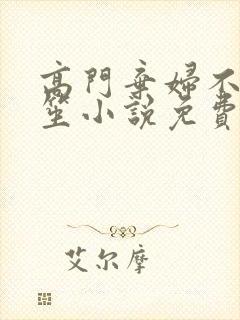 高門棄婦不
笙小說免費
艾尔摩